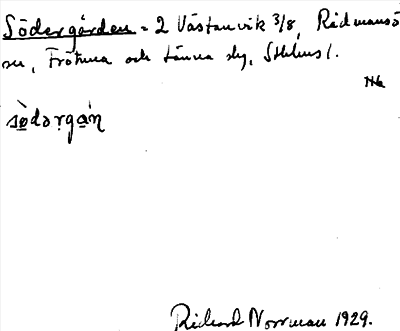 Södergården = 2 Västanvik 3/8, Rådmansö
sn, Frötuna och Länna slg, Sthlms l.
södərgan
Rickard Norrman 1929.